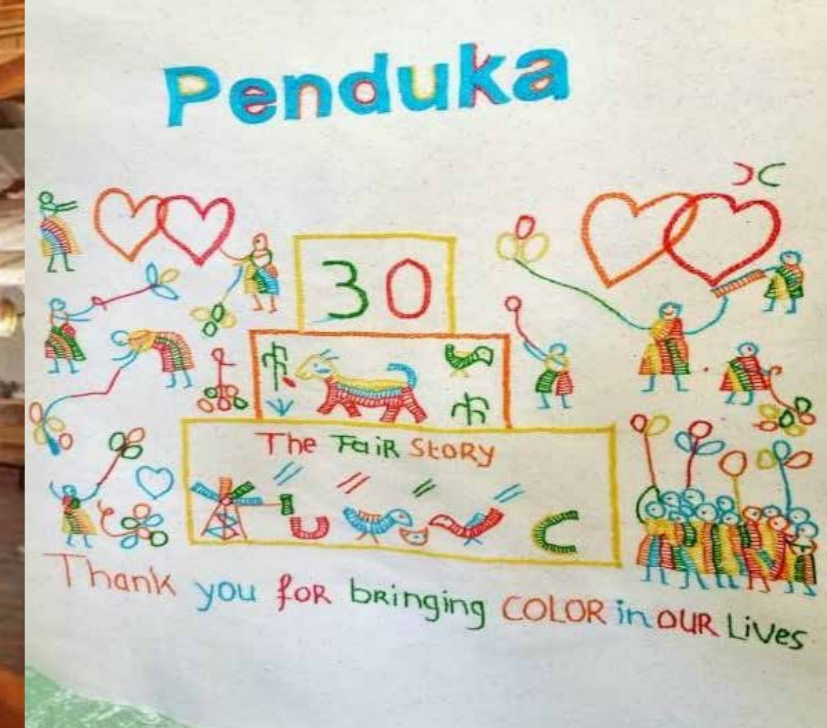 Penduka
30
The FaiR StoRy
Thank you foR bRinging COLOR in OUR LiVes